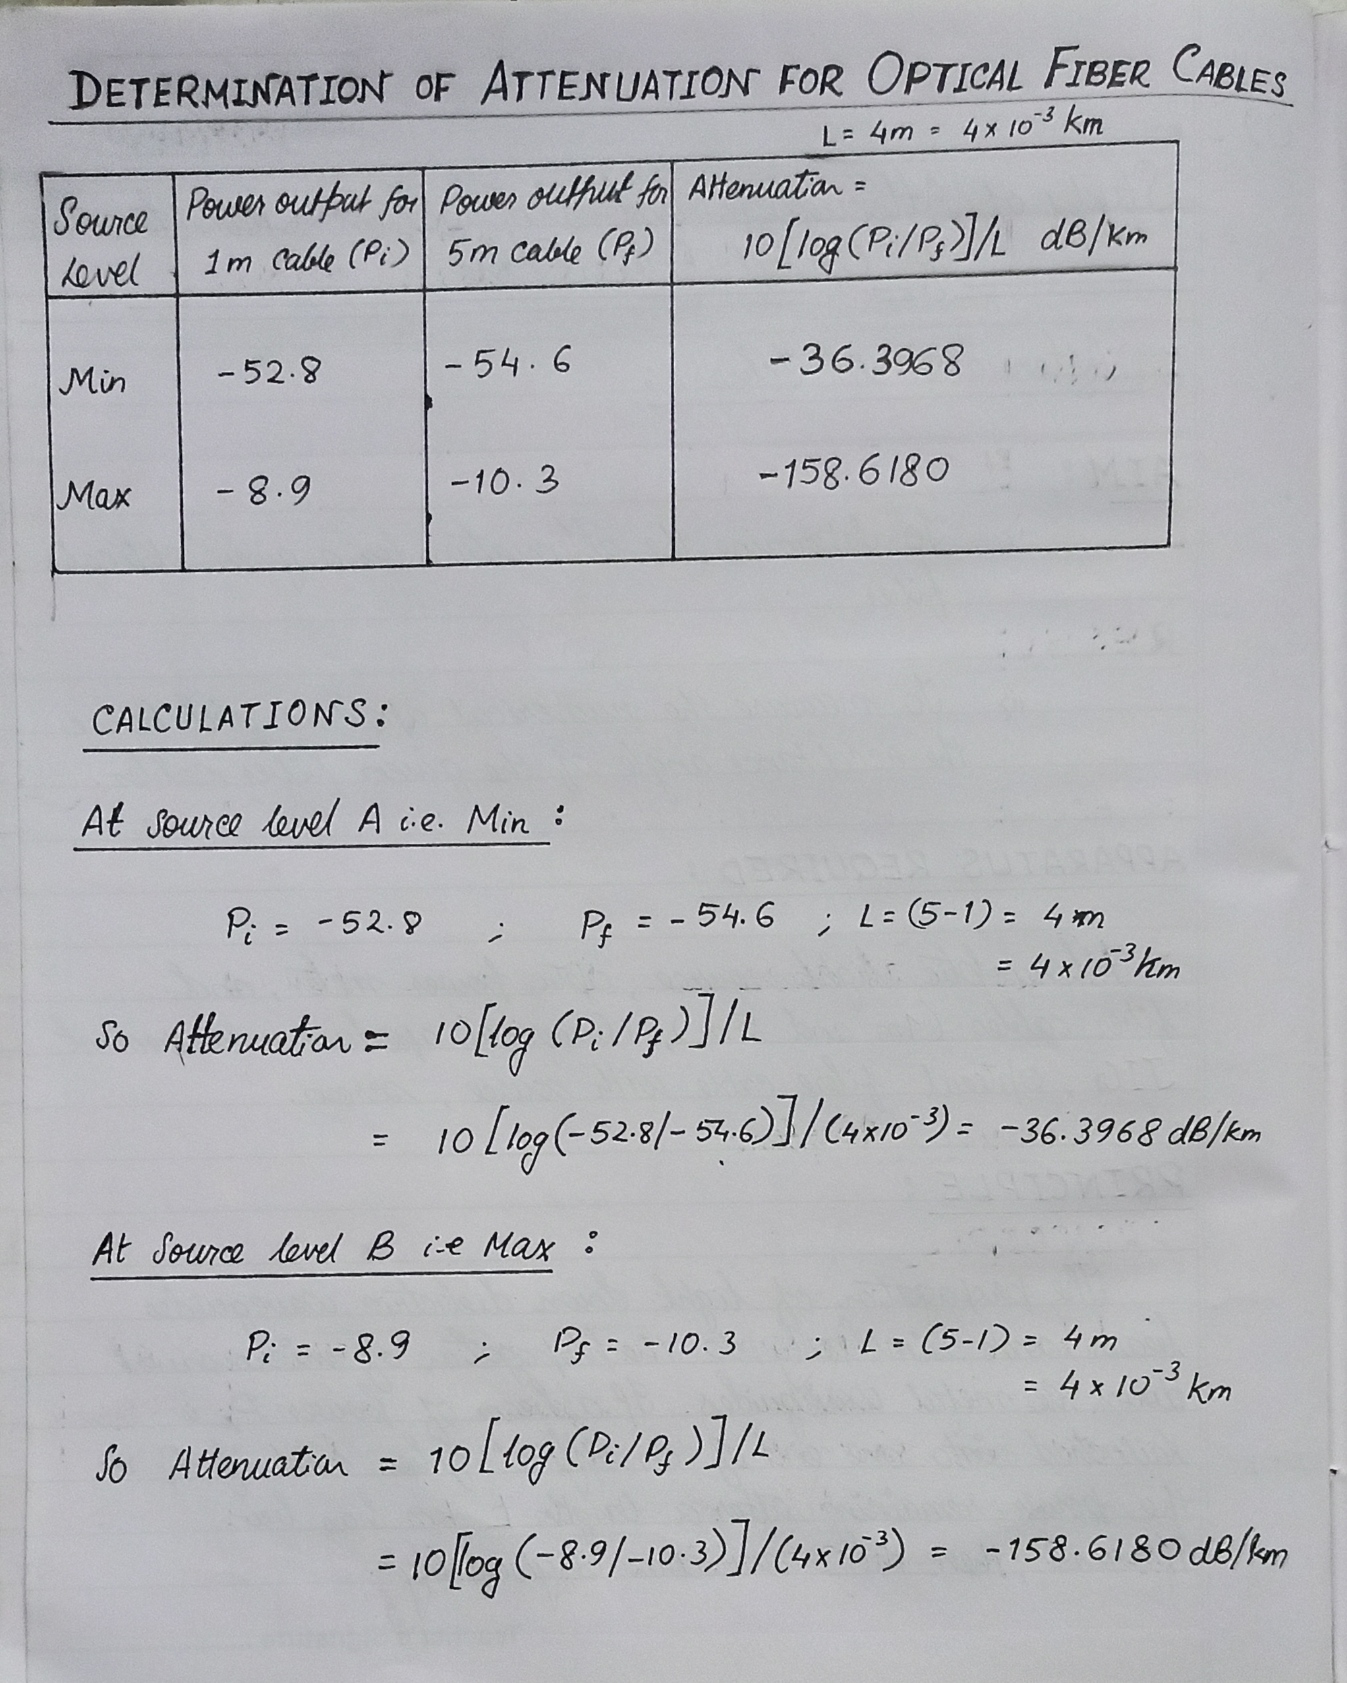 DETERMINATION OF ATTENUATION FOR OPTICAL FIBER CABLES
L = 4m = 4 x 10⁻³ km
Source Level | Power output for 1m cable (Pi) | Power output for 5m cable (Pf) | Attenuation = 10[log(Pi/Pf)]/L dB/km
Min | -52.8 | -54.6 | -36.3968
Max | -8.9 | -10.3 | -158.6180
CALCULATIONS:
At source level A i.e. Min :
Pi = -52.8 ; Pf = -54.6 ; L = (5-1) = 4 m
= 4 x 10⁻³ km
So Attenuation = 10[log (Pi/Pf)]/L
= 10 [log(-52.8/-54.6)]/(4x10⁻³) = -36.3968 dB/km
At Source level B i.e Max :
Pi = -8.9 ; Pf = -10.3 ; L = (5-1) = 4 m
= 4 x 10⁻³ km
So Attenuation = 10[log (Pi/Pf)]/L
= 10[log (-8.9/-10.3)]/(4x10⁻³) = -158.6180 dB/km